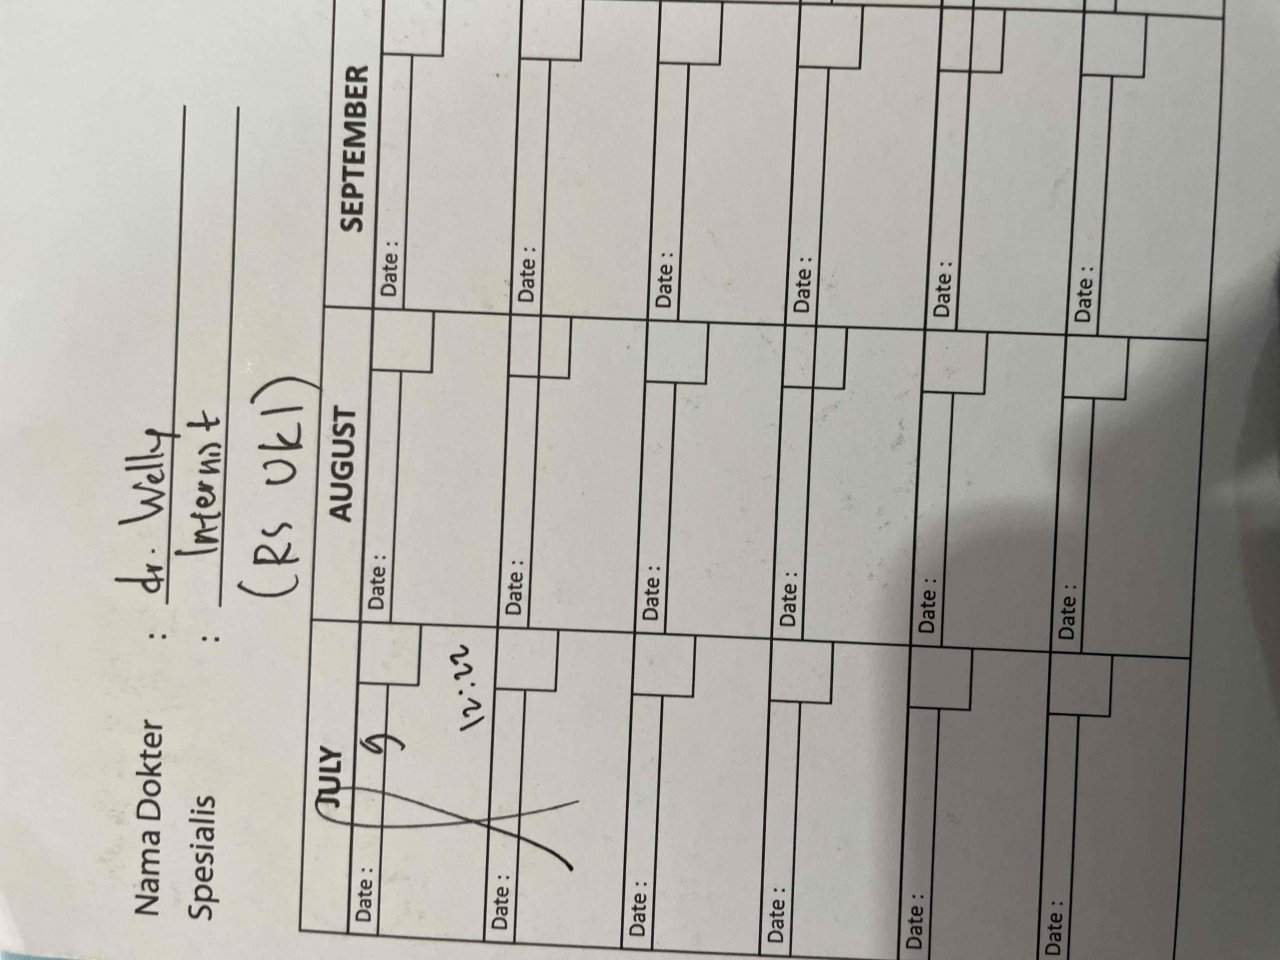 Nama Dokter : dr. Welly
Spesialis : Internist
(RS UKI)
JULY AUGUST SEPTEMBER
Date : 9 Date : Date :
12:22
Date : Date : Date :
Date : Date : Date :
Date : Date : Date :
Date : Date : Date :
Date : Date : Date :